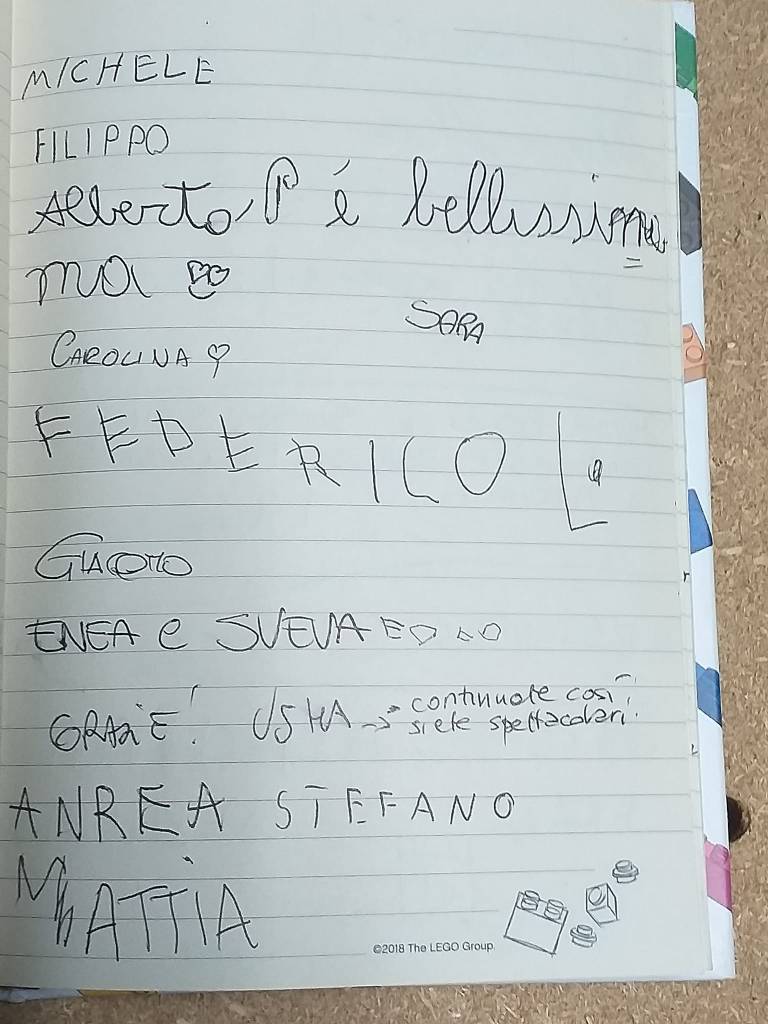 MICHELE
FILIPPO
Alberto P é bellissima
ma
SARA
CAROLINA
FEDERICO L
GIACOMO
ENEA e SVEVA EDO
GRAZIE! USHA → continuate così,
siete spettacolari!
ANREA STEFANO
MATTIA
©2018 The LEGO Group.